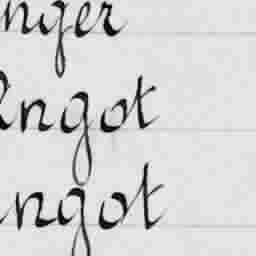 nger
ngot
ngot